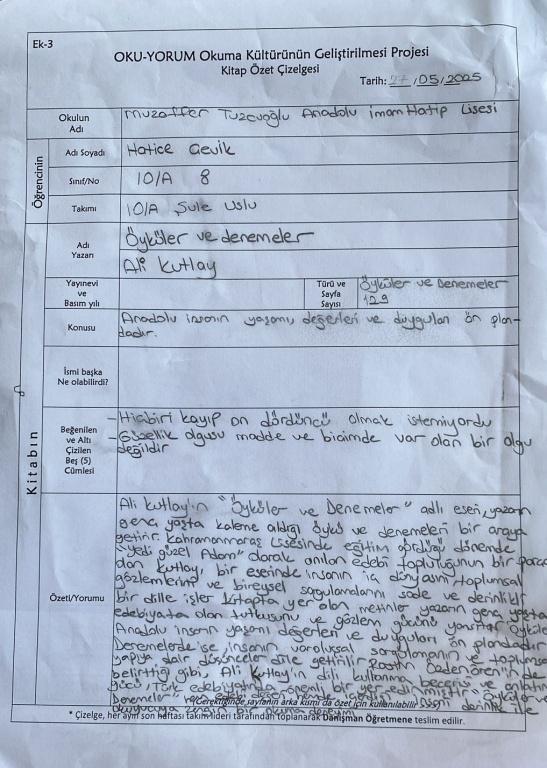 Ek-3
OKU-YORUM Okuma Kültürünün Geliştirilmesi Projesi
Kitap Özet Çizelgesi
Tarih: 27/05/2025
Okulun Adı
Muzaffer Tuzcuoğlu Anadolu imam Hatip Lisesi
Öğrencinin
Adı Soyadı
Hatice Çevik
Sınıf/No
10/A 8
Takımı
10/A Şule Uslu
Kitabın
Adı
Yazarı
Öyküler ve denemeler
Ali Kutlay
Yayınevi ve Basım yılı
Türü ve Sayfa Sayısı
Öyküler ve Denemeler
129
Konusu
Anadolu insanın yaşamı, değerleri ve duyguları ön plan-
dadır.
İsmi başka Ne olabilirdi?
Beğenilen ve Altı Çizilen Beş (5) Cümlesi
-Hiçbiri kayıp on dördüncü olmak istemiyordu
-Güzellik olgusu madde ve biçimde var olan bir olgu
değildir
Özeti/Yorumu
Ali Kutlay'ın "Öyküler ve Denemeler" adlı eseri, yazarın
genç yaşta kaleme aldığı öykü ve denemeleri bir araya
getirir. Kahramanmaraş Lisesinde eğitim gördüğü dönemde
"Yedi güzel Adam" olarak anılan edebi topluluğunun bir parçası
olan Kutlay, bir eserinde insanın iç dünyasını, toplumsal
gözlemlerini ve bireysel sorgulamalarını sade ve derinlikli
bir dille işler. Kitapta yer alan metinler yazarın genç yaşta
edebiyata olan tutkusunu ve gözlem gücünü yansıtır. Öyküler
Anadolu insanın yaşamı değerleri ve duyguları ön plandadır
Denemelerde ise insanın varoluşsal sorgulamanın ve toplumsal
yapıya dair düşünceler dile getirilir. Rasim Özdenören'in de
belirttiği gibi, Ali Kutlay'ın dili kullanma becerisi ve anlatım
gücü Türk edebiyatında önemli bir yer edinmiştir "Öyküler ve
Denemeler" hem edebi değeri hem de
okuyucuya zengin bir okuma deneyimi
*Gerektiğinde sayfanın arka kısmı da özet için kullanılabilir
* Çizelge, her ayın son haftası takım lideri tarafından toplanarak Danışman Öğretmene teslim edilir.